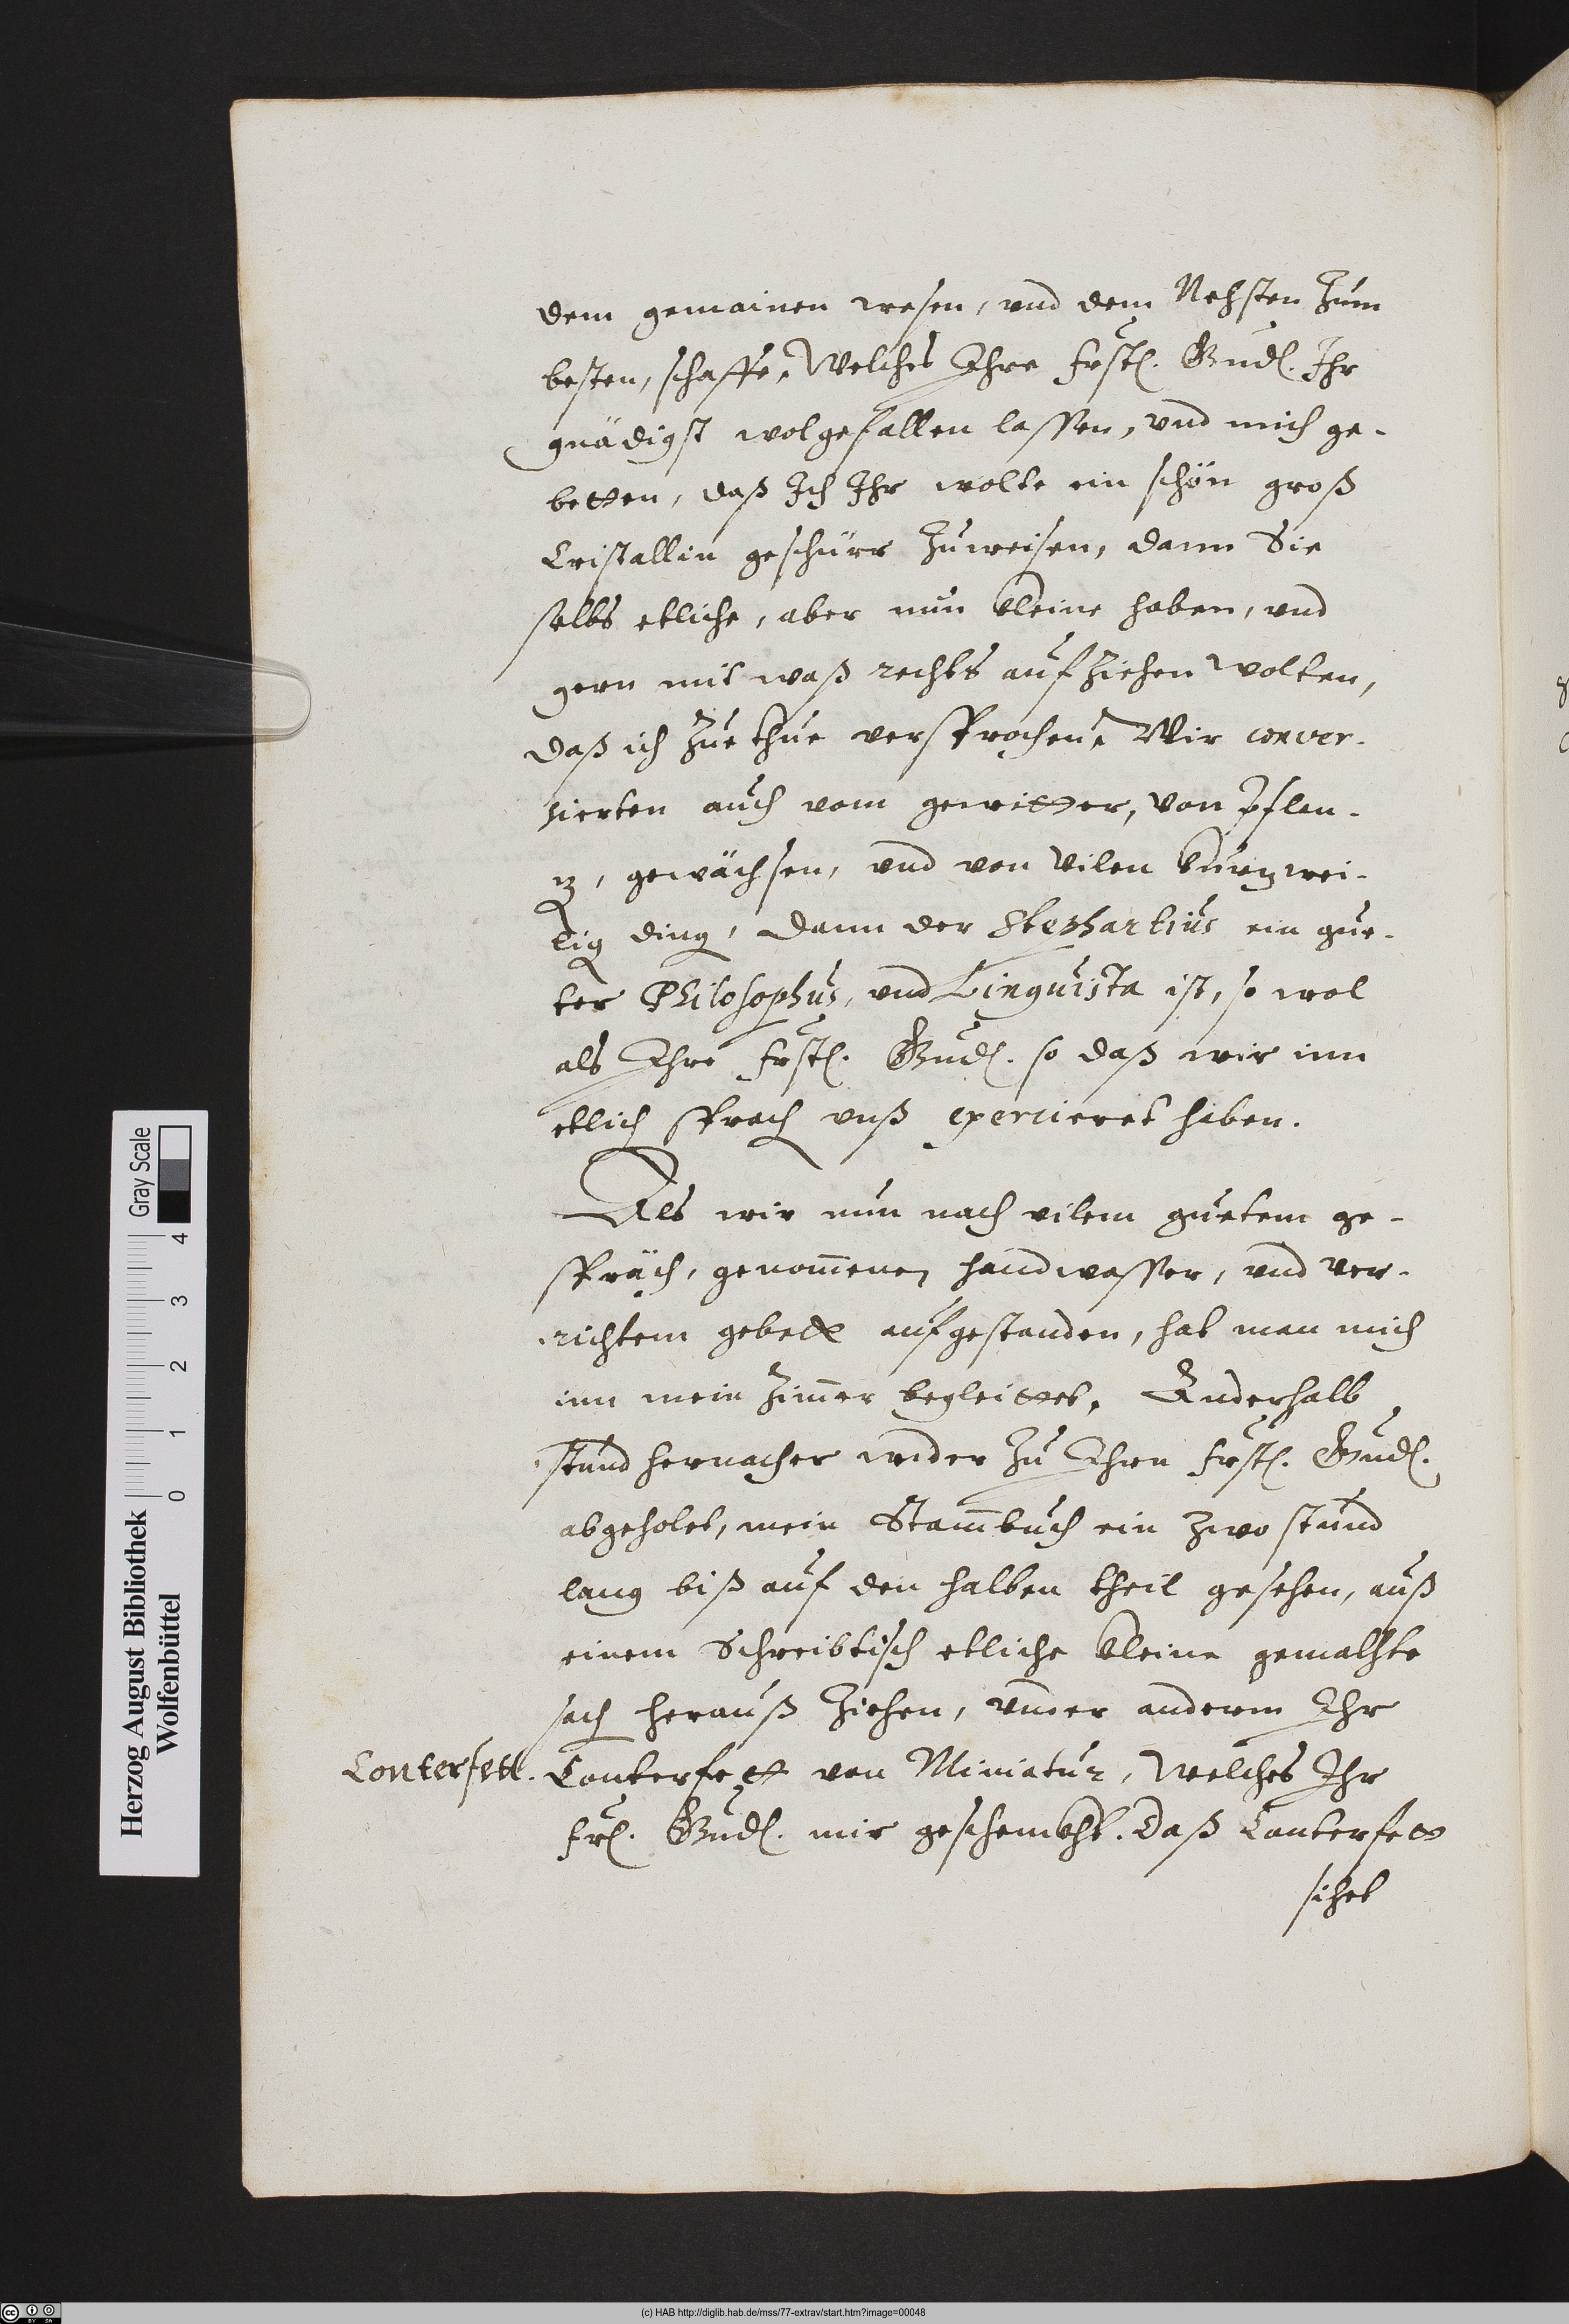 dem gemainen wesen, vnd dem Nehsten Zum
besten, schaffe. Welches Ihre frstl. Gnd. Ihr
gnädigst wolgefallen lassen, vnd mich ge-
betten, daß Ich Ihr wolte ein schön groß
Cristallin geschürr Zuweisen, dann Sie
selbs etliche, aber nun kleine haben, vnd
gern mit waß rechts aufziehen wolten,
daß ich Zue thue versprochen. Wir conver-
sierten auch vom gewitter, von Pflan-
tz, gewächsen, vnd von vilen kurtzwei-
lig ding, dann der Stephartius ein gue-
ter Philosophus, vnd Linguista ist, so wol
als Ihre frstl. Gnd. so daß wir inn
etlich sprach vnß exercieret haben.
Als wir nun nach vilem guetem ge-
spräch, genom̄enen handwasser, vnd ver-
richtem gebett aufgestanden, hat man mich
inn mein Zim̄er begleittet. Anderhalb
stund hernacher wider Zu Ihren frstl. Gnd.
abgeholet, mein Stam̄buch ein zwo stund
lang biß auf den halben theil gesehen, auß
einem Schreibtisch etliche kleine gemalhte
sach herauß Ziehen, vnder anderm Ihr
Conterfett. Conterfett von Miniatur, welches Ihr
frl. Gnd. mir geschenckht. Daß Conterfett
sihet
Herzog August Bibliothek
Wolfenbüttel
0 1 2 3 4
Gray Scale
(c) HAB http://diglib.hab.de/mss/77-extrav/start.htm?image=00048